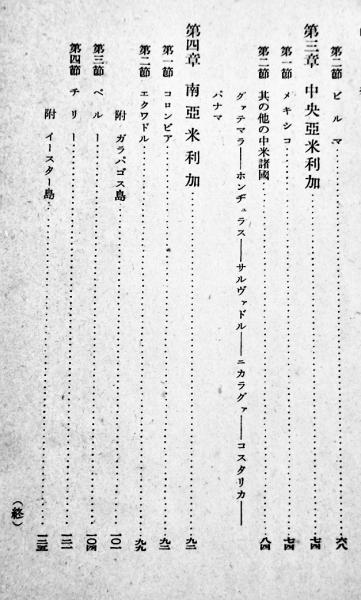 第二節 ビルマ……六八
第三章 中央亞米利加……七四
第一節 メキシコ……七四
第二節 其の他の中米諸國……八四
グァテマラ――ホンヂュラス――サルヴァドル――ニカラグァ――コスタリカ――
パナマ
第四章 南亞米利加……九二
第一節 コロンビア……九二
第二節 エクワドル……九九
附 ガラパゴス島……一〇一
第三節 ペルー……一〇四
第四節 チリー……一二一
附 イースター島……一三五
(終)